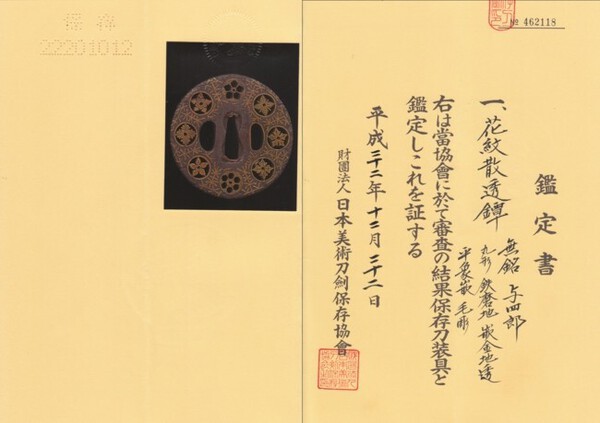 保存
22201012
№ 462118
鑑定書
一、花紋散透鐔 無銘 与四郎
丸形 鉄磨地 嵌金地透
平象嵌 毛彫
右は當協會に於て審査の結果保存刀装具と
鑑定しこれを証する
平成二十二年十二月二十二日
財團法人 日本美術刀劍保存協會